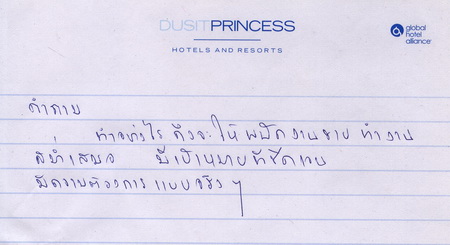 DUSIT PRINCESS
HOTELS AND RESORTS
global
hotel
alliance
คำถาม
ทำอย่างไร ถึงจะให้พนักงานขาย ทำงาน
สม่ำเสมอ มีเป้าหมายที่ชัดเจน
มีความต้องการ แบบจริง ๆ